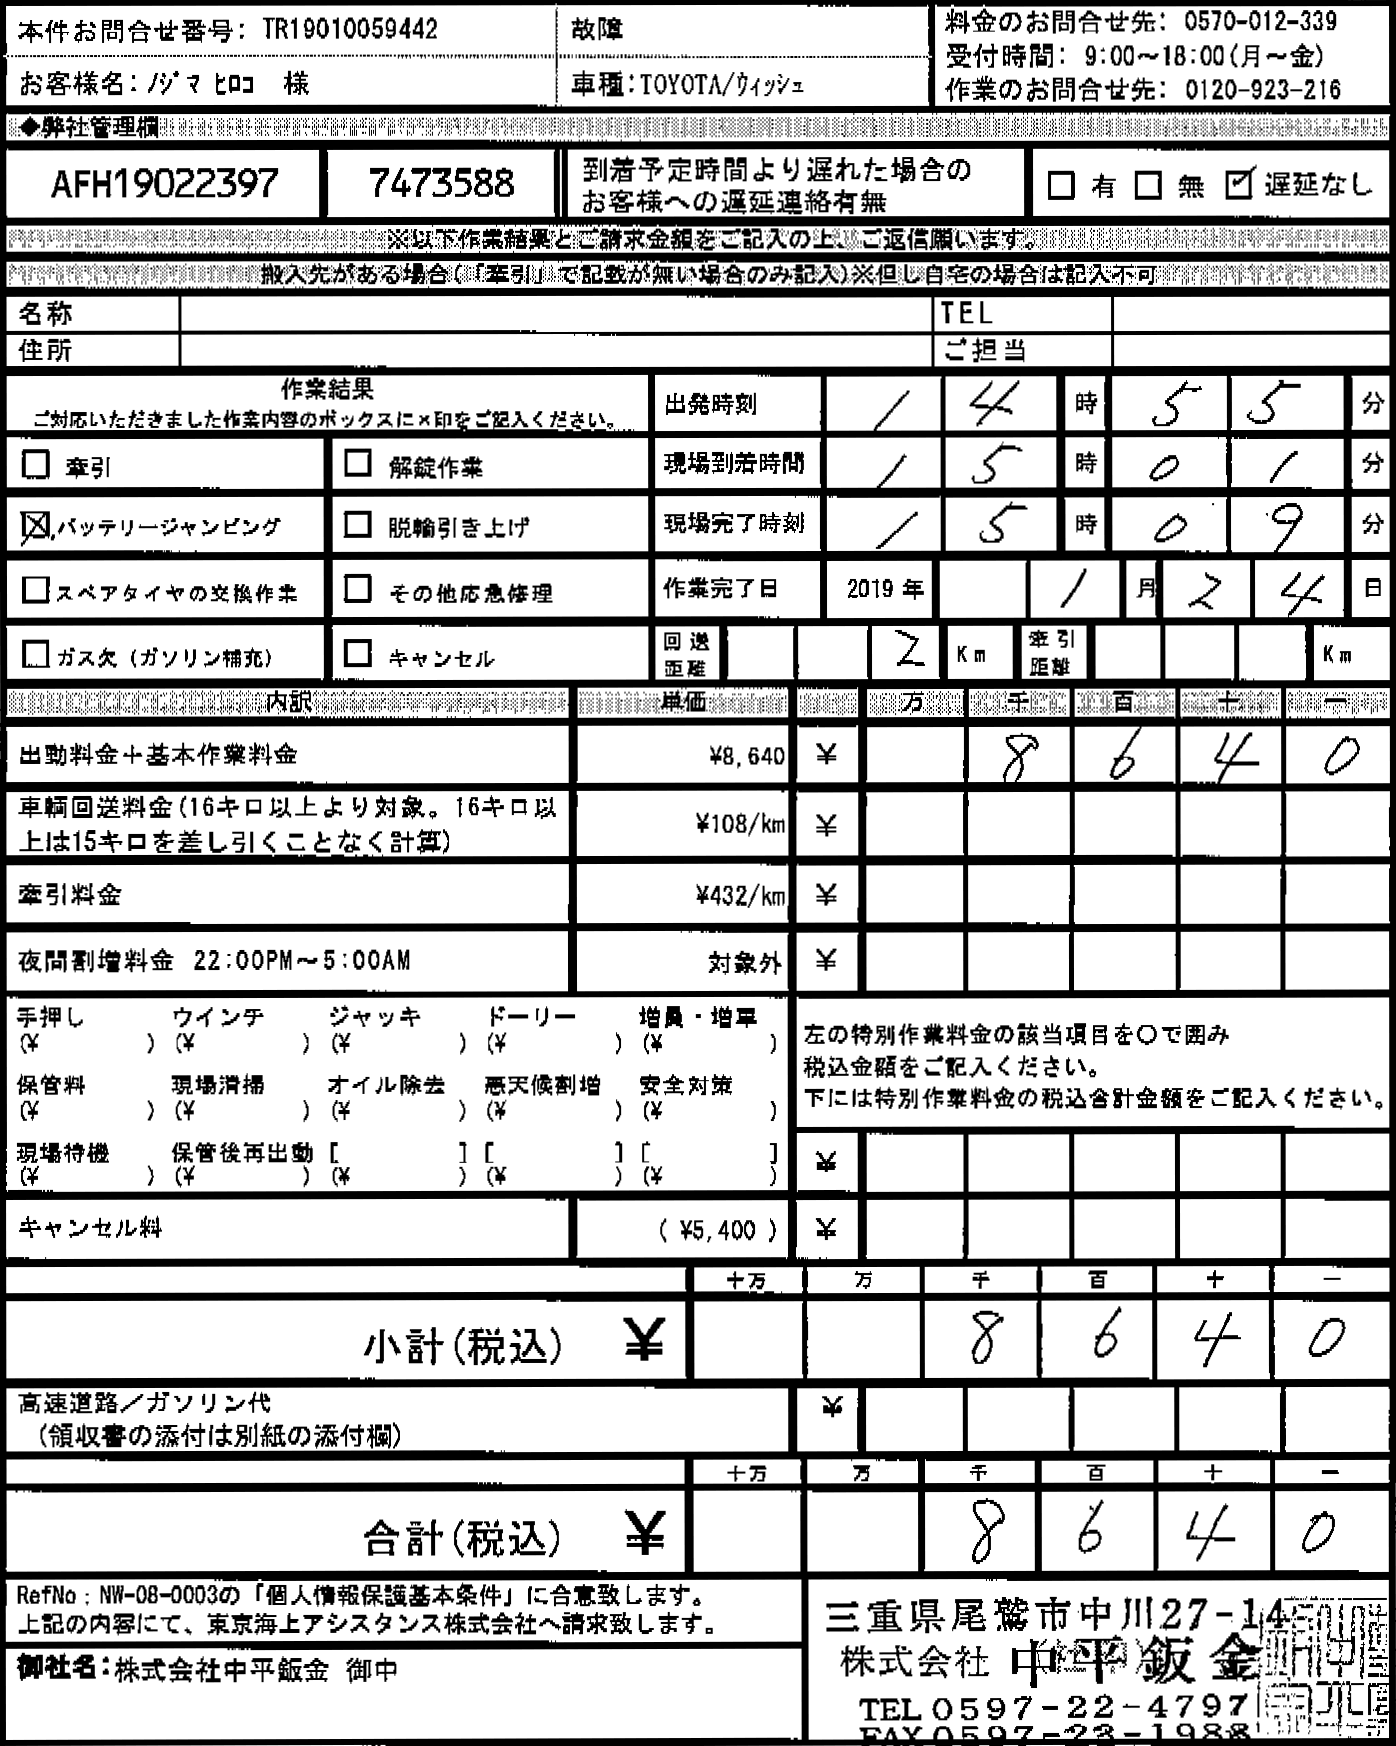 本件お問合せ番号: TR19010059442
故障
お客様名:ﾉｼﾞﾏ ﾋﾛｺ 様
車種:TOYOTA/ｳｨｯｼｭ
料金のお問合せ先: 0570-012-339
受付時間: 9:00〜18:00(月〜金)
作業のお問合せ先: 0120-923-216
◆弊社管理欄
AFH19022397 7473588
到着予定時間より遅れた場合の
お客様への遅延連絡有無
□ 有 □ 無 ☑ 遅延なし
※以下作業結果とご請求金額をご記入の上、ご返信願います。
搬入先がある場合(「牽引」で記載が無い場合のみ記入)※但し自宅の場合は記入不可
名称 TEL
住所 ご担当
作業結果
ご対応いただきました作業内容のボックスに×印をご記入ください。
出発時刻 1 4 時 5 5 分
□ 牽引 □ 解錠作業 現場到着時間 1 5 時 0 1 分
☒ バッテリージャンピング □ 脱輪引き上げ 現場完了時刻 1 5 時 0 9 分
□ スペアタイヤの交換作業 □ その他応急修理 作業完了日 2019 年 1 月 2 4 日
□ ガス欠 (ガソリン補充) □ キャンセル 回送距離 2 Km 牽引距離 Km
内訳 単価 万 千 百 十 一
出動料金＋基本作業料金 ¥8,640 ¥ 8 6 4 0
車輌回送料金(16キロ以上より対象。16キロ以
上は15キロを差し引くことなく計算) ¥108/km ¥
牽引料金 ¥432/km ¥
夜間割増料金 22:00PM〜5:00AM 対象外 ¥
手押し ウインチ ジャッキ ドーリー 増員・増車
(¥ ) (¥ ) (¥ ) (¥ ) (¥ )
保管料 現場清掃 オイル除去 悪天候割増 安全対策
(¥ ) (¥ ) (¥ ) (¥ ) (¥ )
現場待機 保管後再出動 [ ] [ ] [ ]
(¥ ) (¥ ) (¥ ) (¥ ) (¥ )
左の特別作業料金の該当項目を〇で囲み
税込金額をご記入ください。
下には特別作業料金の税込合計金額をご記入ください。
¥
キャンセル料 ( ¥5,400 ) ¥
十万 万 千 百 十 一
小計(税込) ¥ 8 6 4 0
高速道路／ガソリン代 ¥
(領収書の添付は別紙の添付欄)
十万 万 千 百 十 一
合計(税込) ¥ 8 6 4 0
RefNo：NW-08-0003の「個人情報保護基本条件」に合意致します。
上記の内容にて、東京海上アシスタンス株式会社へ請求致します。
御社名:株式会社中平鈑金 御中
三重県尾鷲市中川27-14
株式会社 中平鈑金
TEL 0597-22-4797
FAX 0597-23-1988